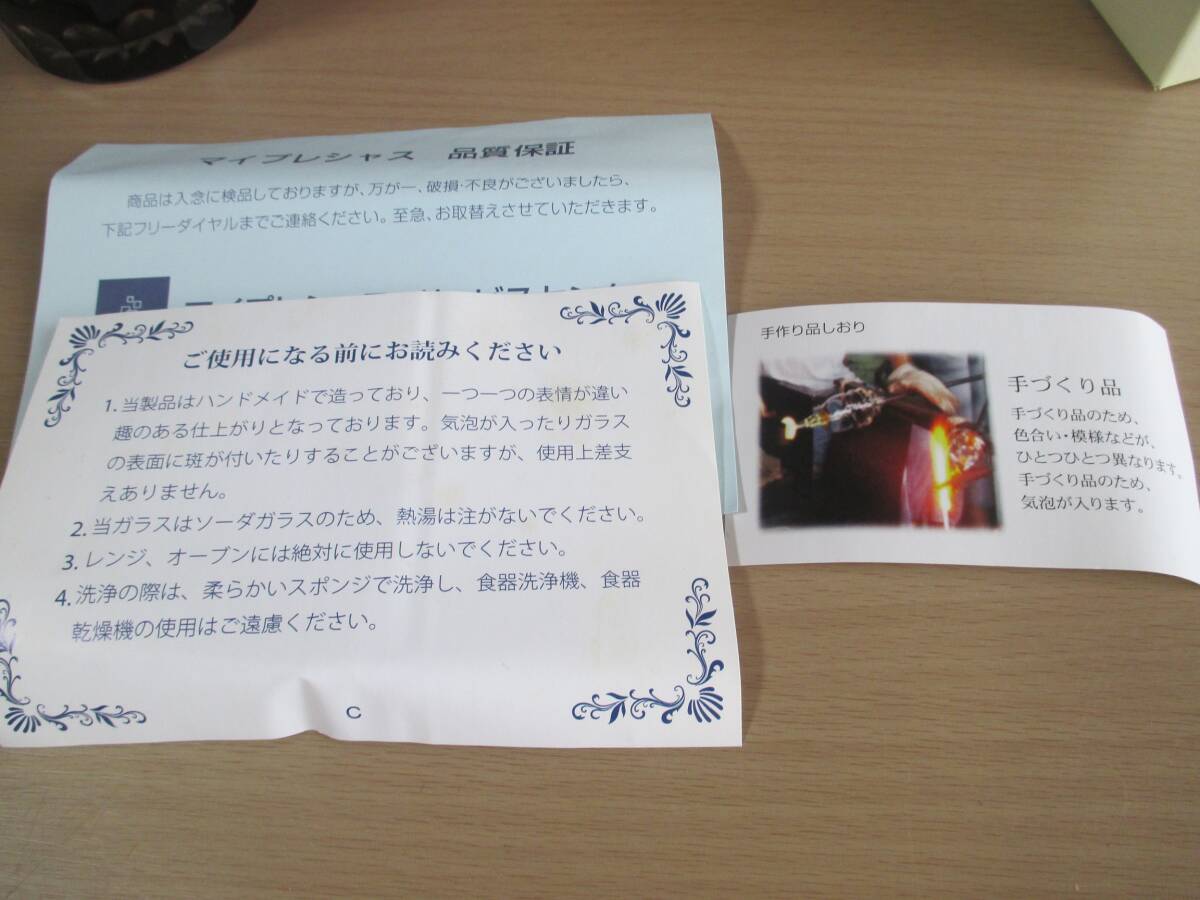 マイプレシャス 品質保証
商品は入念に検品しておりますが、万が一、破損・不良がございましたら、
下記フリーダイヤルまでご連絡ください。至急、お取替えさせていただきます。
ご使用になる前にお読みください
1. 当製品はハンドメイドで造っており、一つ一つの表情が違い
趣のある仕上がりとなっております。気泡が入ったりガラス
の表面に斑が付いたりすることがございますが、使用上差支
えありません。
2. 当ガラスはソーダガラスのため、熱湯は注がないでください。
3. レンジ、オーブンには絶対に使用しないでください。
4. 洗浄の際は、柔らかいスポンジで洗浄し、食器洗浄機、食器
乾燥機の使用はご遠慮ください。
C
手作り品しおり
手づくり品
手づくり品のため、
色合い・模様などが、
ひとつひとつ異なります。
手づくり品のため、
気泡が入ります。